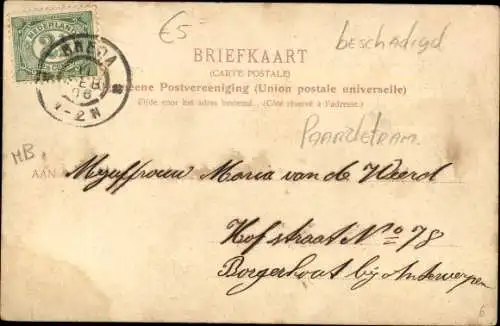 £5
beschadigd
NEDERLAND
BREDA
BRIEFKAART
(CARTE POSTALE)
Algemeene Postvereeniging (Union postale universelle)
Zijde voor het adres bestemd. (Côté réservé à l'adresse.)
1-2 N
Paardetram.
MB
AAN Mejuffrouw Maria van de Weerd
Hofstraat No 78
Borgerhout bij Antwerpen
6